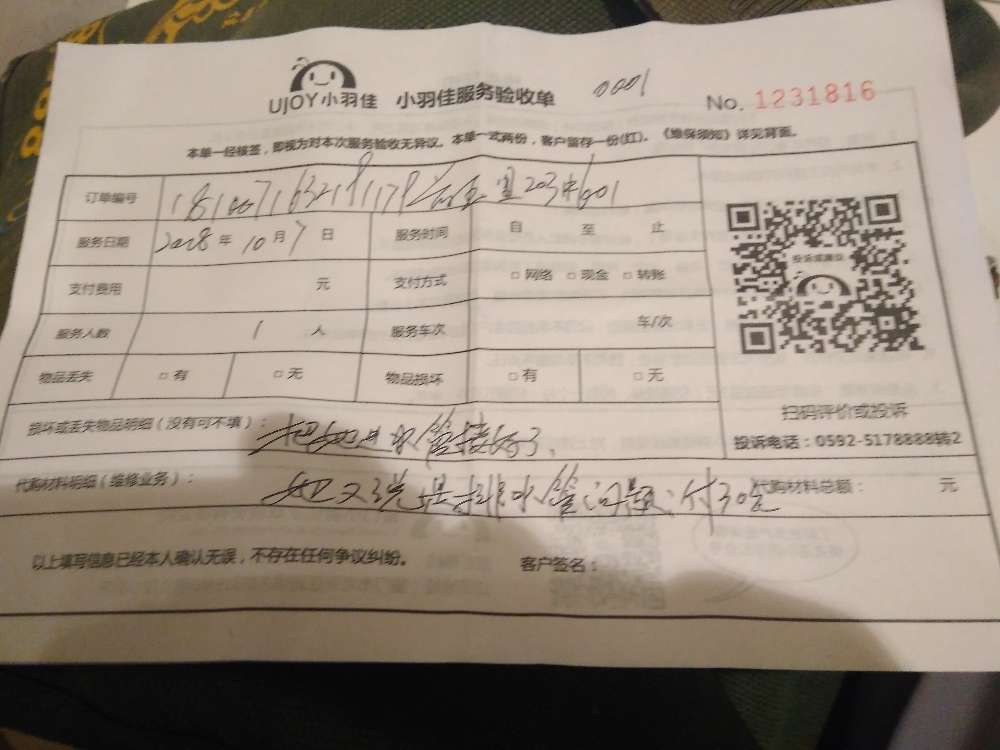 UJOY小羽佳 小羽佳服务验收单 0001 No. 1231816
本单一经核签，即视为对本次服务验收无异议。本单一式两份，客户留存一份(红)。《维保须知》详见背面。
订单编号
服务日期 2018年 10月 7日 服务时间 自 至 止
支付费用 元 支付方式 □网络 □现金 □转账
服务人数 1 人 服务车次 车/次
物品丢失 □有 □无 物品损坏 □有 □无
投诉或建议
扫码评价或投诉
投诉电话：0592-5178888转2
损坏或丢失物品明细（没有可不填）： 把她进水管接好了、
代购材料明细（维修业务）： 她又说是排水管问题 代购材料总额： 元
以上填写信息已经本人确认无误，不存在任何争议纠纷。 客户签名：